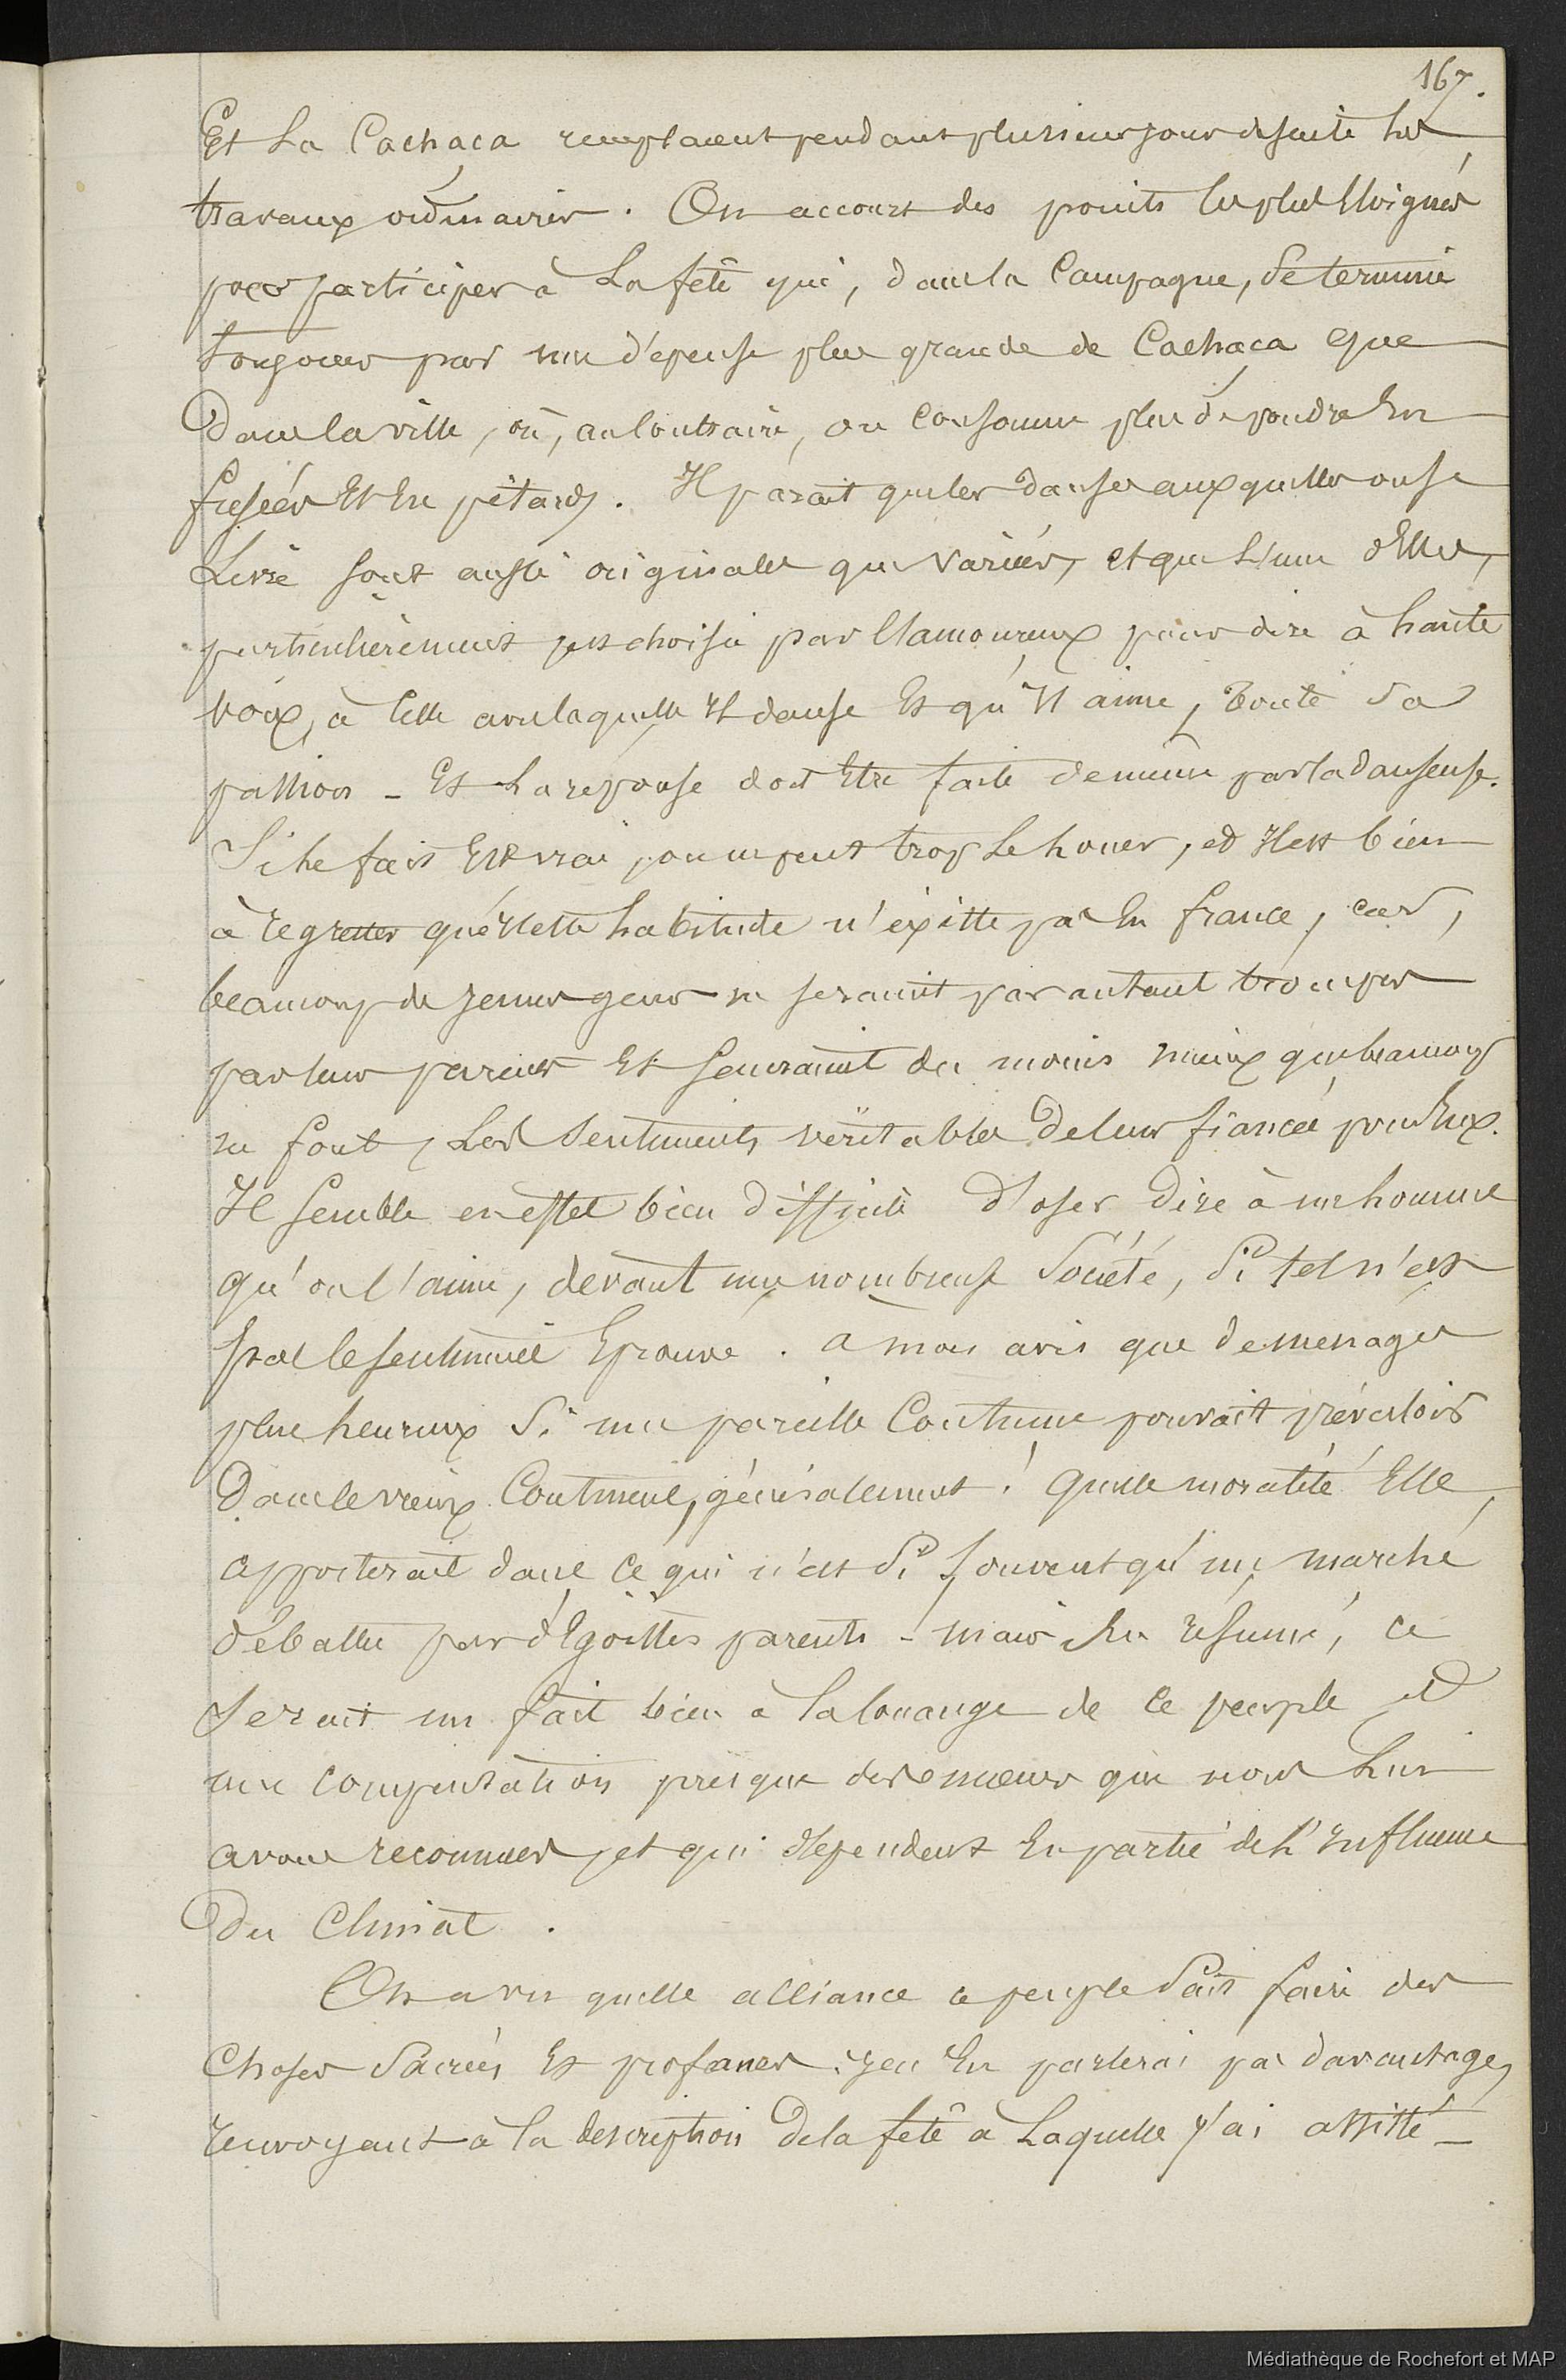 167.
Et La Cachaça remplacent pendant plusieurs jours de suite les
travaux ordinaires. On accourt des points les plus Eloignés
pour participer à La fête qui, dans la Campagne, se termine
toujours par une dépense plus grande de Cachaça que
Dans la ville, où, au Contraire, on consomme plus de poudre En
fusées Et En pétards. Il parait que les danses auxquelles on se
Livre sont aussi originales que variées, et que L'une d'Elles,
particulièrement est choisie par l'amoureux pour dire à haute
voix, à Celle avec laquelle Il danse Et qu'Il aime, toute sa
passion _ Et La réponse doit Etre faite de même par la danseuse.
Si le fait Est vrai, on ne peut trop Le Louer, et Il est bien
à regretter que Cette habitude n'existe pas En france, car,
beaucoup de jeunes gens ne seraient pas autant trompés
par leurs parents Et sauraient du moins mieux que beaucoup
ne font, Les sentiments véritables De leur fiancée pour Eux.
Il semble en effet bien difficile d'oser Dire à un homme
qu'on l'aime, devant une nombreuse Société, si tel n'est
pas le sentiment Eprouvé. a mon avis que de menages
plus heureux si une pareille Coutume pouvait prévaloir
Dans le vieux Continent, généralement! quelle moralité Elle
apporterait dans Ce qui n'est si souvent qu'un marché
débattu par d'Egoïstes parents - mais En résumé, ce
serait un fait bien à la louange de Ce peuple et
une compensation presque des moeurs que nous Lui
avons reconnues, et qui dépendent En partie de L'Influence
Du Climat.
On a vu quelle alliance ce peuple sait faire des
Choses Sacrées Et profanes; je n'En parlerai pas davantage,
renvoyant à la description De la fête à Laquelle J'ai assisté _
Médiathèque de Rochefort et MAP